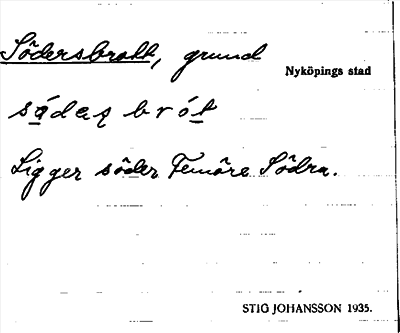 Södersbrott, grund
Nyköpings stad
södaʂ brót
Ligger söder Femöre Södra.
STIG JOHANSSON 1935.